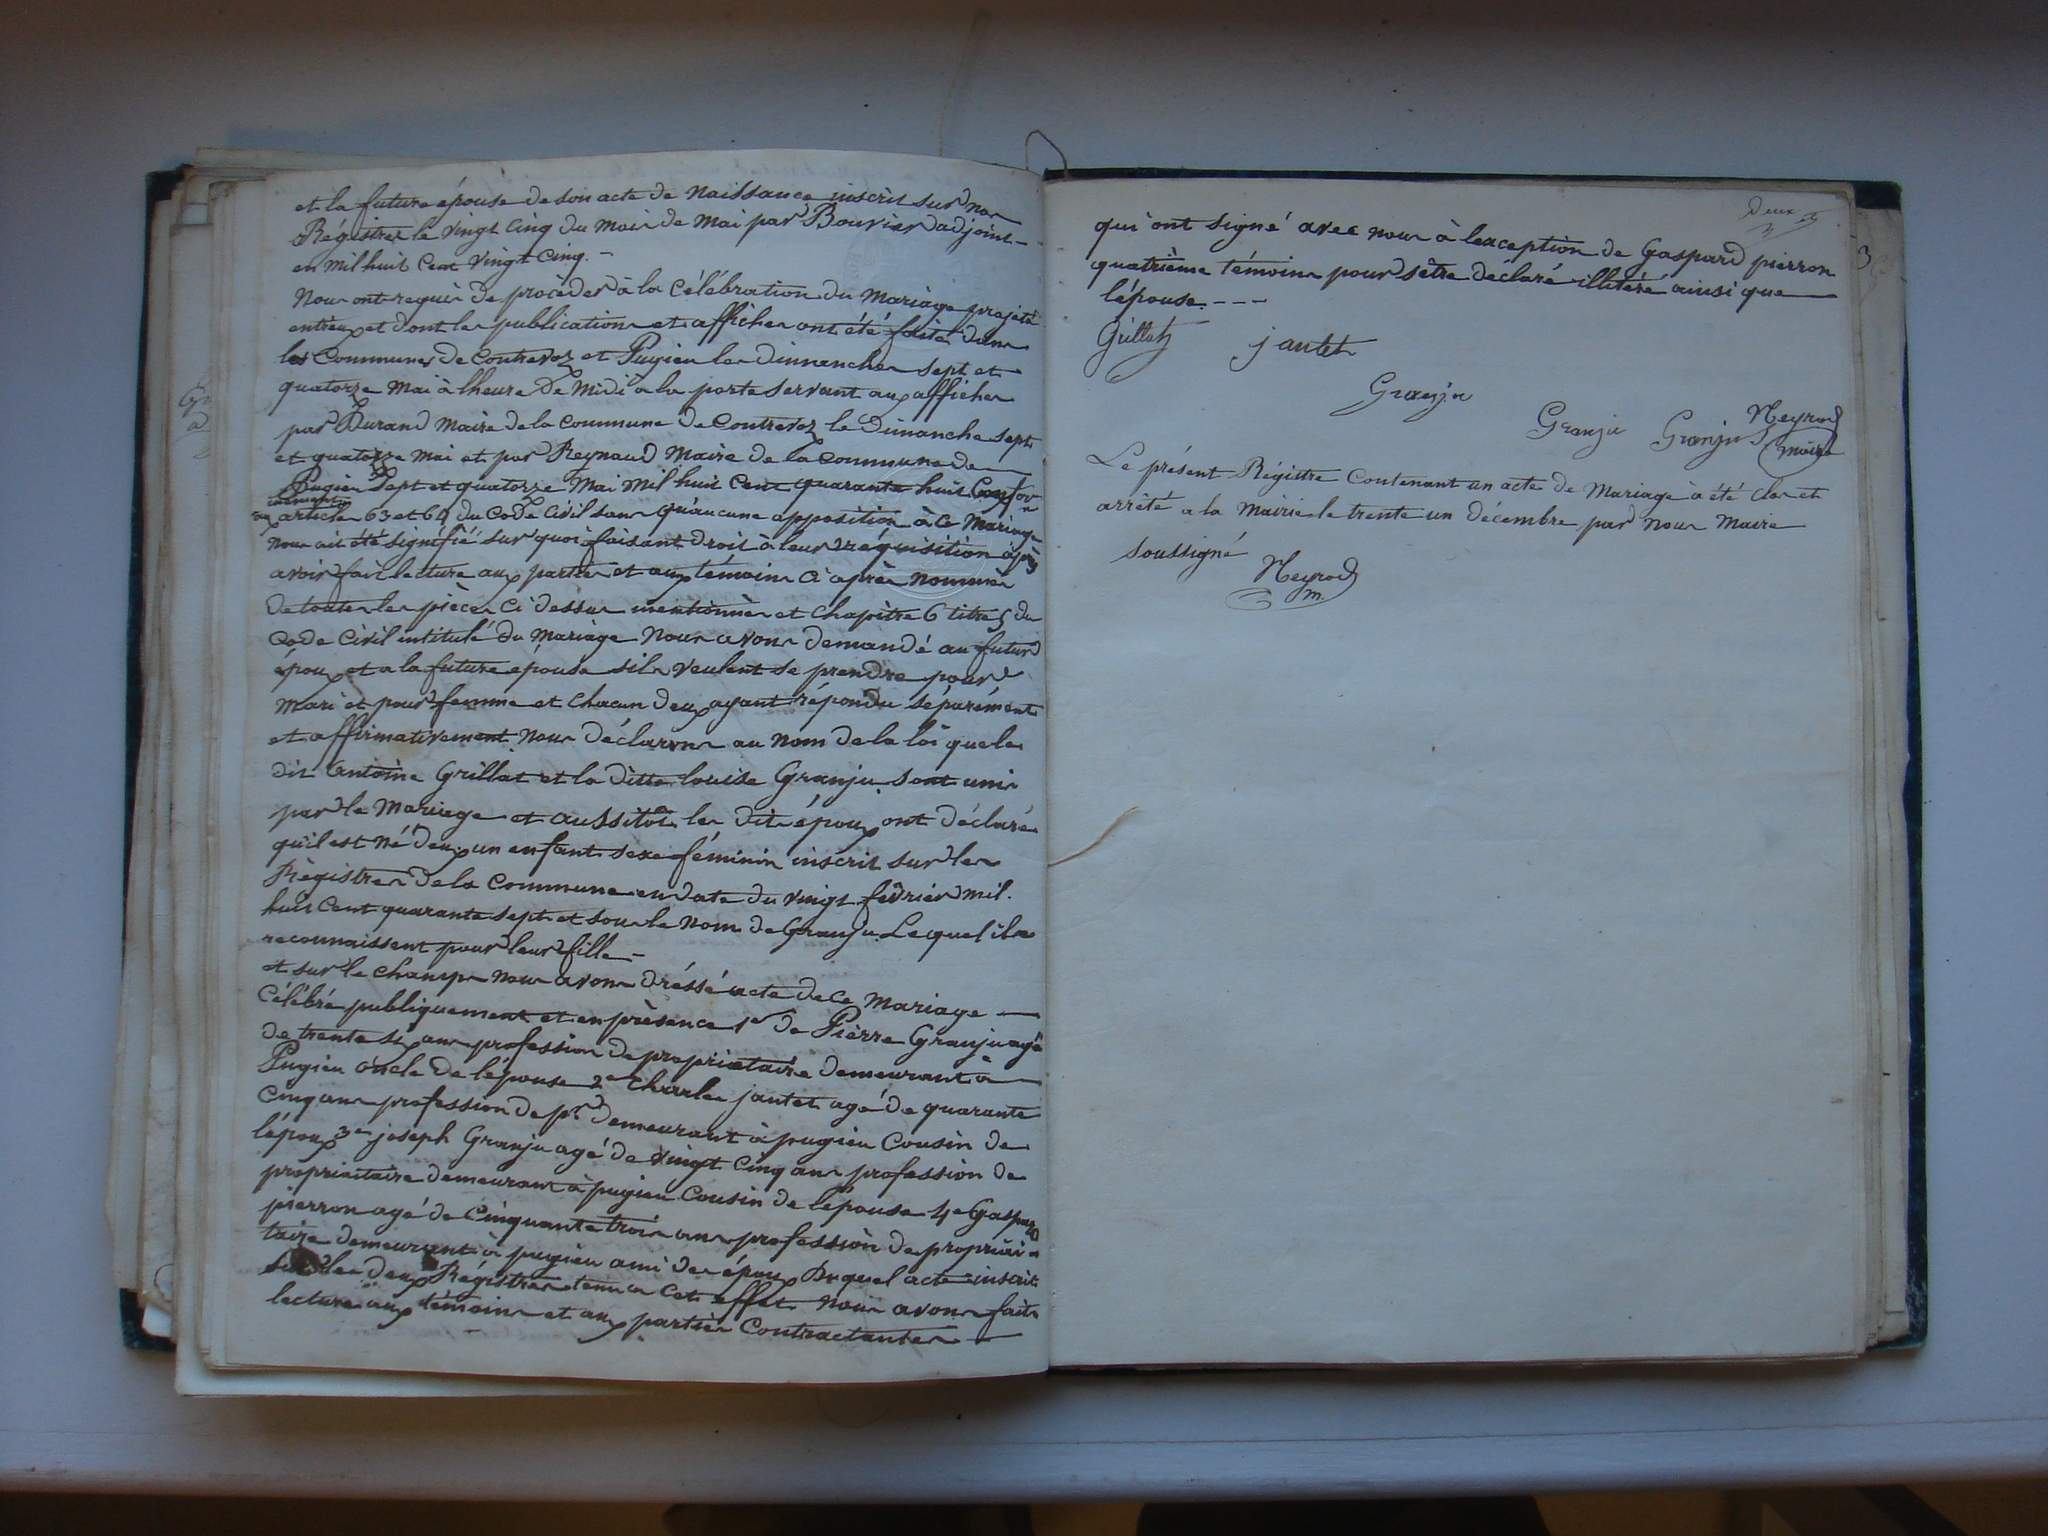 et la future épouse de son acte de naissance inscrit sur nos
Régistres le vingt cinq du mois de mai par Bouvier adjoint
en mil huit Cent vingt cinq.
nous ont requis de procéder à la Célébration du Mariage projeté
entreux et dont les publications et affiches ont été faites dans
les Communes de Contrevoz et Pugieu les dimmanches sept et
quatorze mai à lheure de midi à la porte servant aux affiches
par Durand Maire de la Commune de Contrevoz le dimanche sept
et quatorze mai et par Reynaud Maire de la commune de
Pugieu Sept et quatorze Mai mil huit Cent quarante huit Confor
mément
aux articles 63 et 64 du Code Civil sans quaucune apposition à ce Mariage
nous ait été signifié sur quoi faisant droit à leur réquisition après
avoir fait lecture aux parties et aux témoins ci après nommés
de toutes les pièces ci dessus mentionnés et chapitre 6 titre 5 du
Code Civil intitulé du Mariage nous avons demandé au futur
époux et a la future épouse sils veulent se prendre pour
mari et pour femme et chacun deux ayant répondu séparément
et affirmativement nous déclarons au nom de la loi que le
dit antoine Grillat et la ditte louise Granju sont unis
par le Mariage et aussitôt les dits époux ont déclaré
quil est né deux un enfant sexe féminin inscrit sur les
Régistres dela Commune en date du vingt fevrier mil
huit Cent quarante sept et sous le nom de Granju Lequel ils
reconnaissent pour leur fille
et sur le champ nous avons dréssé acte de ce Mariage
Célébré publiquement et en présence 1er de Pièrre Granju agé
de trente six ans profession de propriétaire demeurant à
Pugieu oncle de lépouse 2e Charles jantet agé de quarante
cinq ans profession de pre demeurant à pugieu Cousin de
lépoux 3e joseph Granju agé de vingt cinq ans profession de
propriaitaire demeurant à pugieu Cousin de lépouse 4e Gaspard
pierron agé de Cinquante trois ans profession de propriéi
taire demeurant à pugieu ami des époux Duquel acte inscrit
sur les deux Régistres tenus a cet effet nous avons fait
lecture aux témoins et aux parties Contractantes
Deux
3
qui ont signé avec nous à lexception de Gaspard pierron
quatrième témoins pour sêtre déclaré illitéré ainsi que
lépouse
Grillat jantet
Granju
Granju Granju Neyrod
maire
Le présent Régistre Contenant un acte de Mariage a été clos et
arrêté a la Mairie le trente un décembre par nous Maire
soussigné
Neyrod
m.